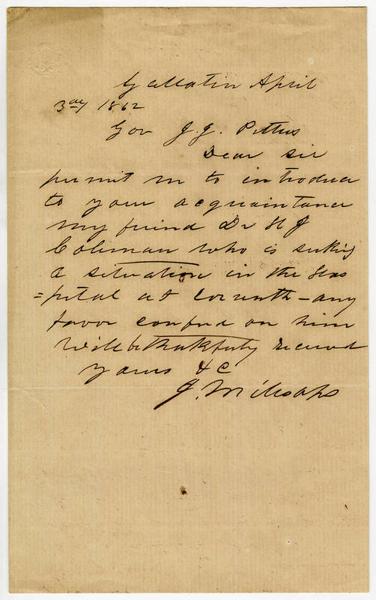 Gallatin April
3ay 1862
Gov J. J. Pettus
Dear Sir
permit m to introduce
to your acquaintance
my friend Dr H J
Coleman who is seeking
a situation in the Hos
=pital at Corinth - any
favor confered on him
will be thankfully received
yours & C
J. Millsaps